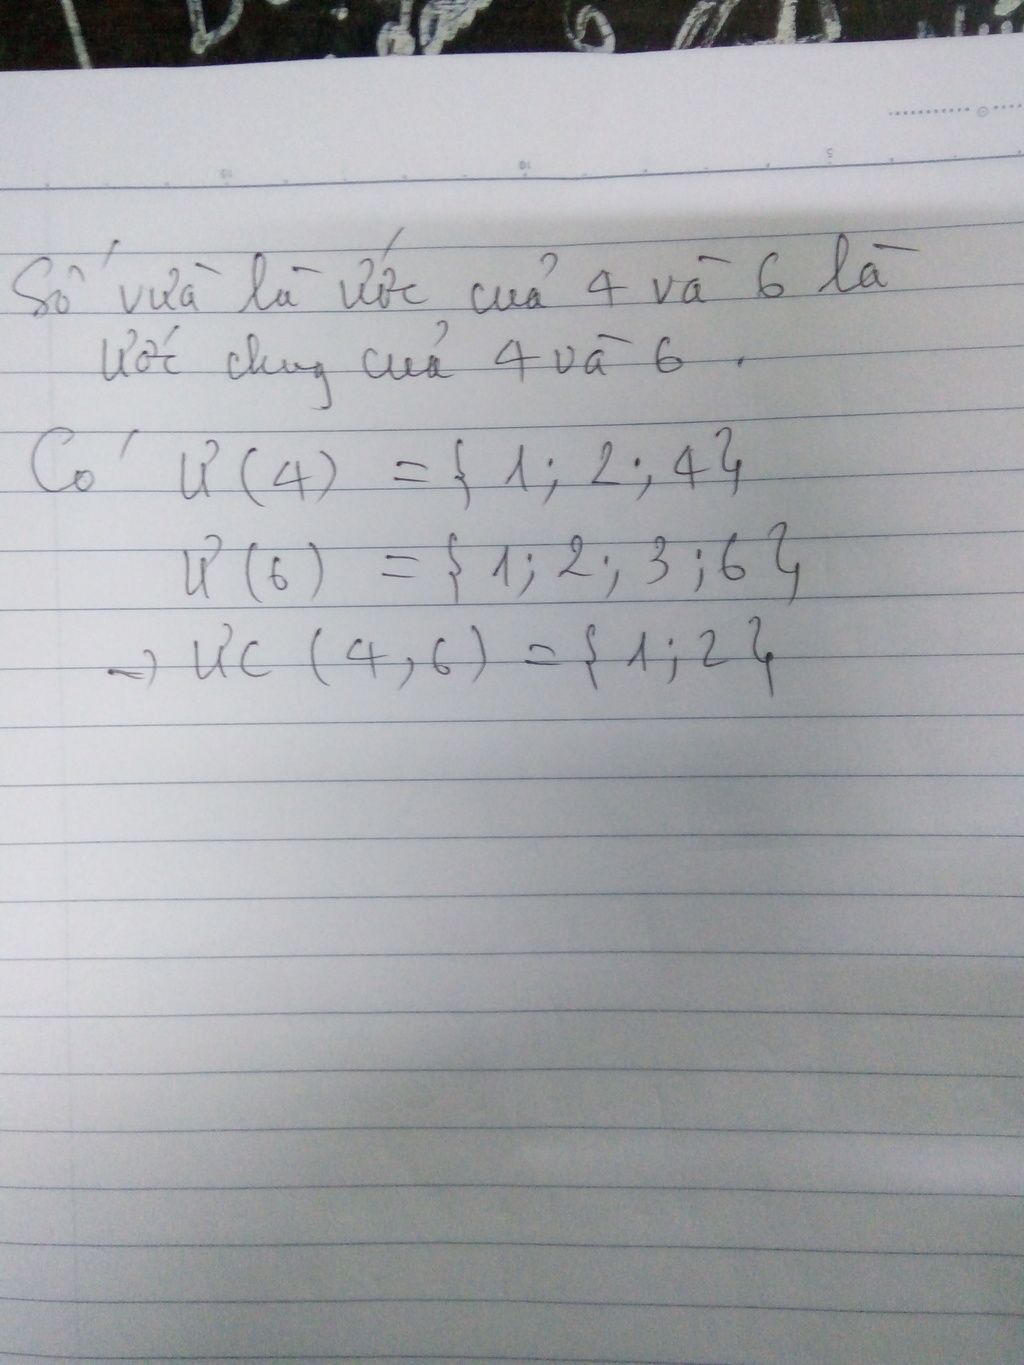 Số vừa là ước của 4 và 6 là
ước chung của 4 và 6.
Có Ư(4) = {1; 2; 4}
Ư(6) = {1; 2; 3; 6}
=> ƯC (4, 6) = {1; 2}